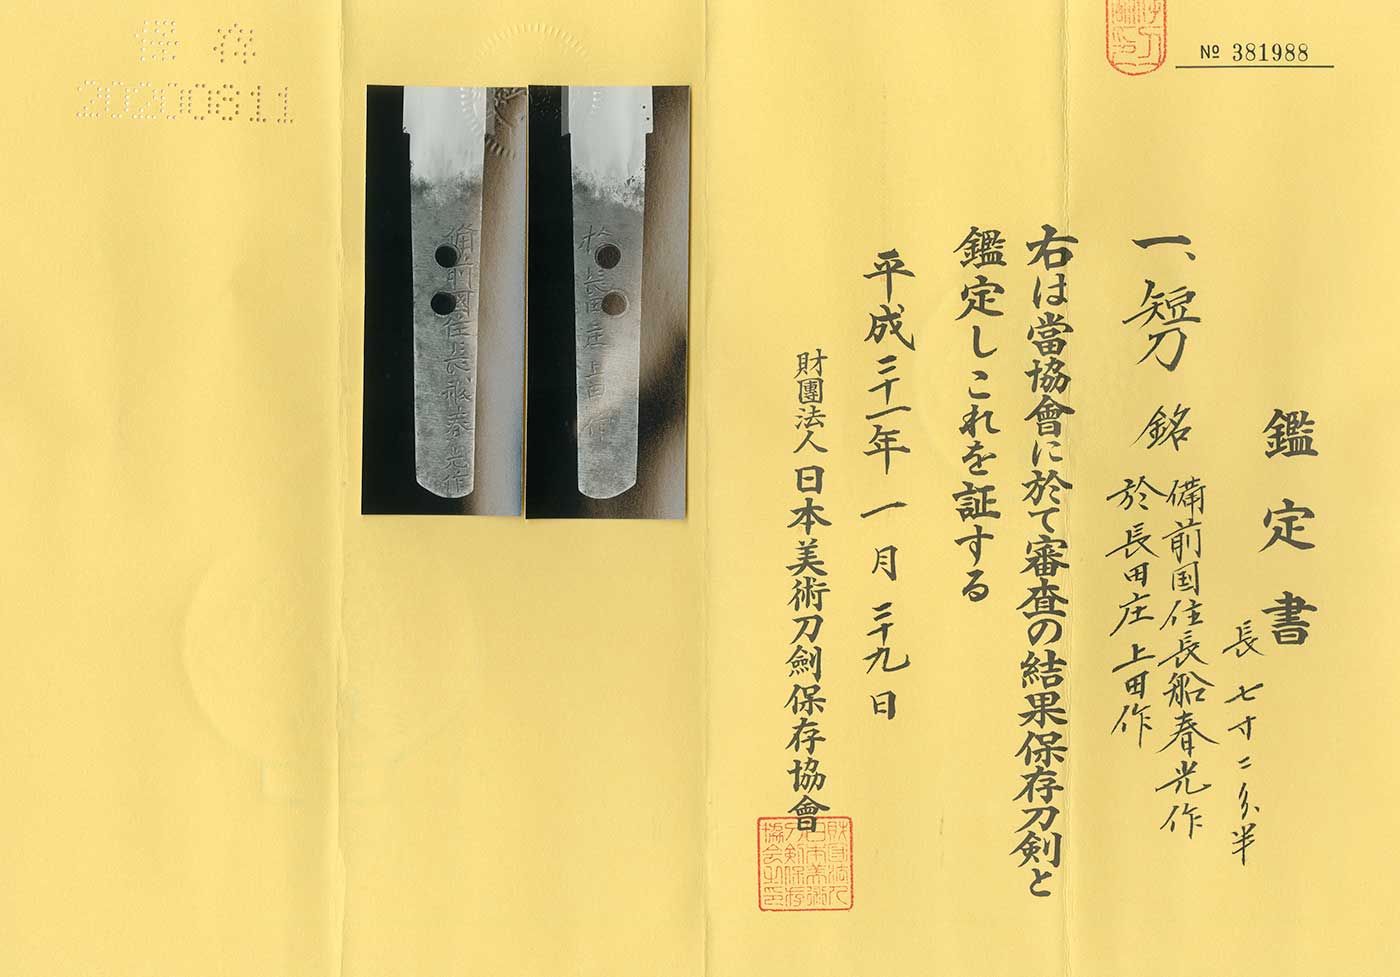 № 381988
鑑定書
一、短刀 銘 備前国住長船春光作
於長田庄上田作
長 七寸二分半
右は當協會に於て審査の結果保存刀剣と
鑑定しこれを証する
平成三十一年一月二十九日
財團法人日本美術刀劍保存協會
備前國住長船春光作
於長田庄上田作
保存
20200811